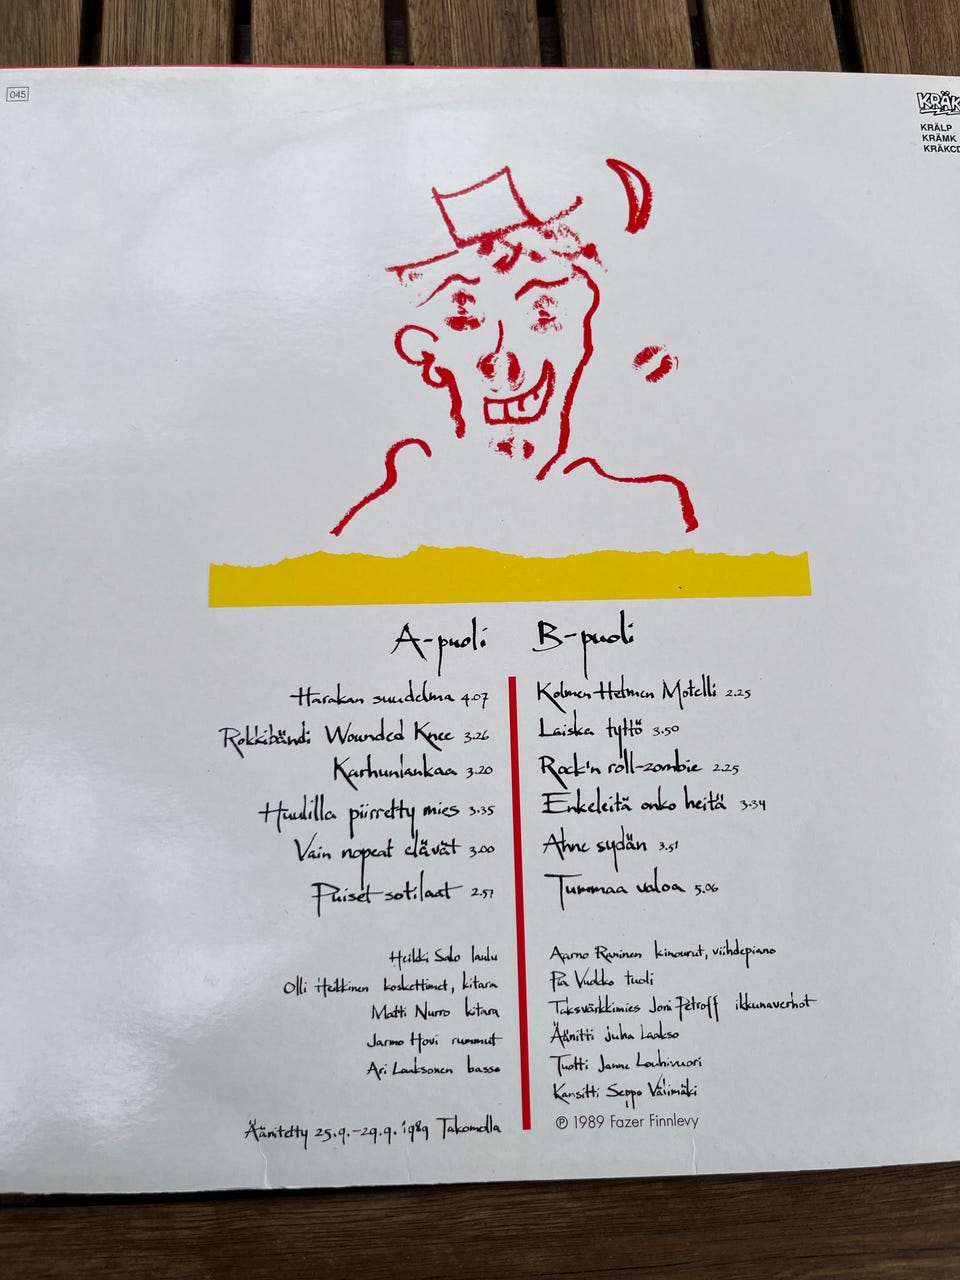 045
KRÄK
KRÄLP
KRÄMK
KRÄKCD
A-puoli
Harakan suudelma 4.07
Rokkibändi Wounded Knee 3.26
Karhunlankaa 3.20
Huulilla piirretty mies 3.35
Vain nopeat elävät 3.00
Puiset sotilaat 2.57
Heikki Salo laulu
Olli Heikkinen koskettimet, kitara
Matti Nurro kitara
Jarmo Hovi rummut
Ari Lauksonen basso
Äänitetty 25.9.-29.9. 1989 Takomolla
B-puoli
Kolmen Helmen Motelli 2.25
Laiska tyttö 3.50
Rock'n roll-zombie 2.25
Enkeleitä onko heitä 3.34
Ahne sydän 3.51
Tummaa valoa 5.06
Aarno Raninen kinourut, viihdepiano
Pia Vuokko tuoli
Taksvärkkimies Joni Petroff ikkunaverhot
Äänitti Juha Laakso
Tuotti Janne Louhivuori
Kansitti Seppo Välimäki
℗ 1989 Fazer Finnlevy